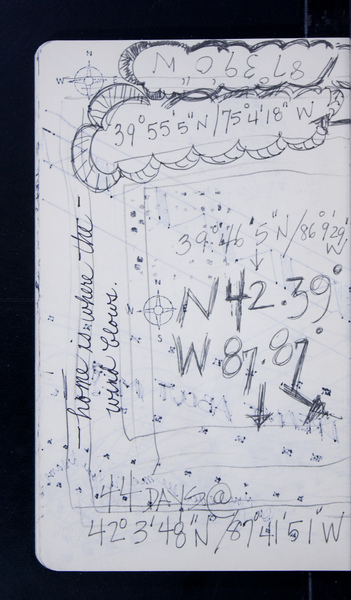 N
W
39°55'5"N/75°4'18" W
39°46'5"N/86°9'29"
W
home is where the
wind blows.
N
S
N 42.39°
W 87.87°
44 DAYS @
42° 3'48"N/87°41'51"W